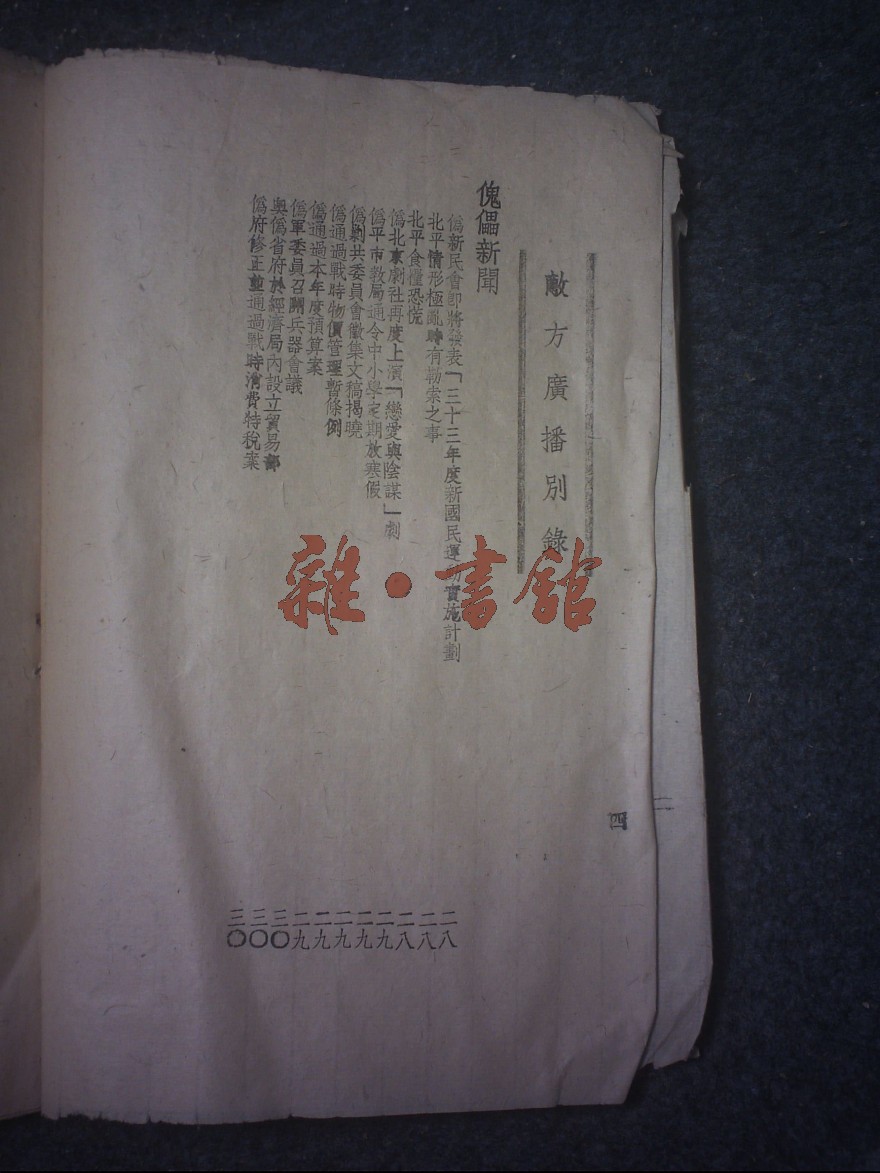 敵方廣播別錄
傀儡新聞
僞新民會卽將發表「三十三年度新國民運動實施計劃
北平情形極亂時有勒索之事
北平食糧恐慌
僞北京劇社再度上演「戀愛與陰謀」劇
僞平市敎局通令中小學定期放寒假
僞剿共委員會徵集文稿揭曉
僞通過戰時物價管理暫條例
僞通過本年度預算案
僞軍委員召開兵器會議
奧僞省府於經濟局內設立貿易部
僞府修正並通過戰時消費特稅案
四
二八
二八
二八
二九
二九
二九
二九
二九
三〇
三〇
三〇
二
雜·書館